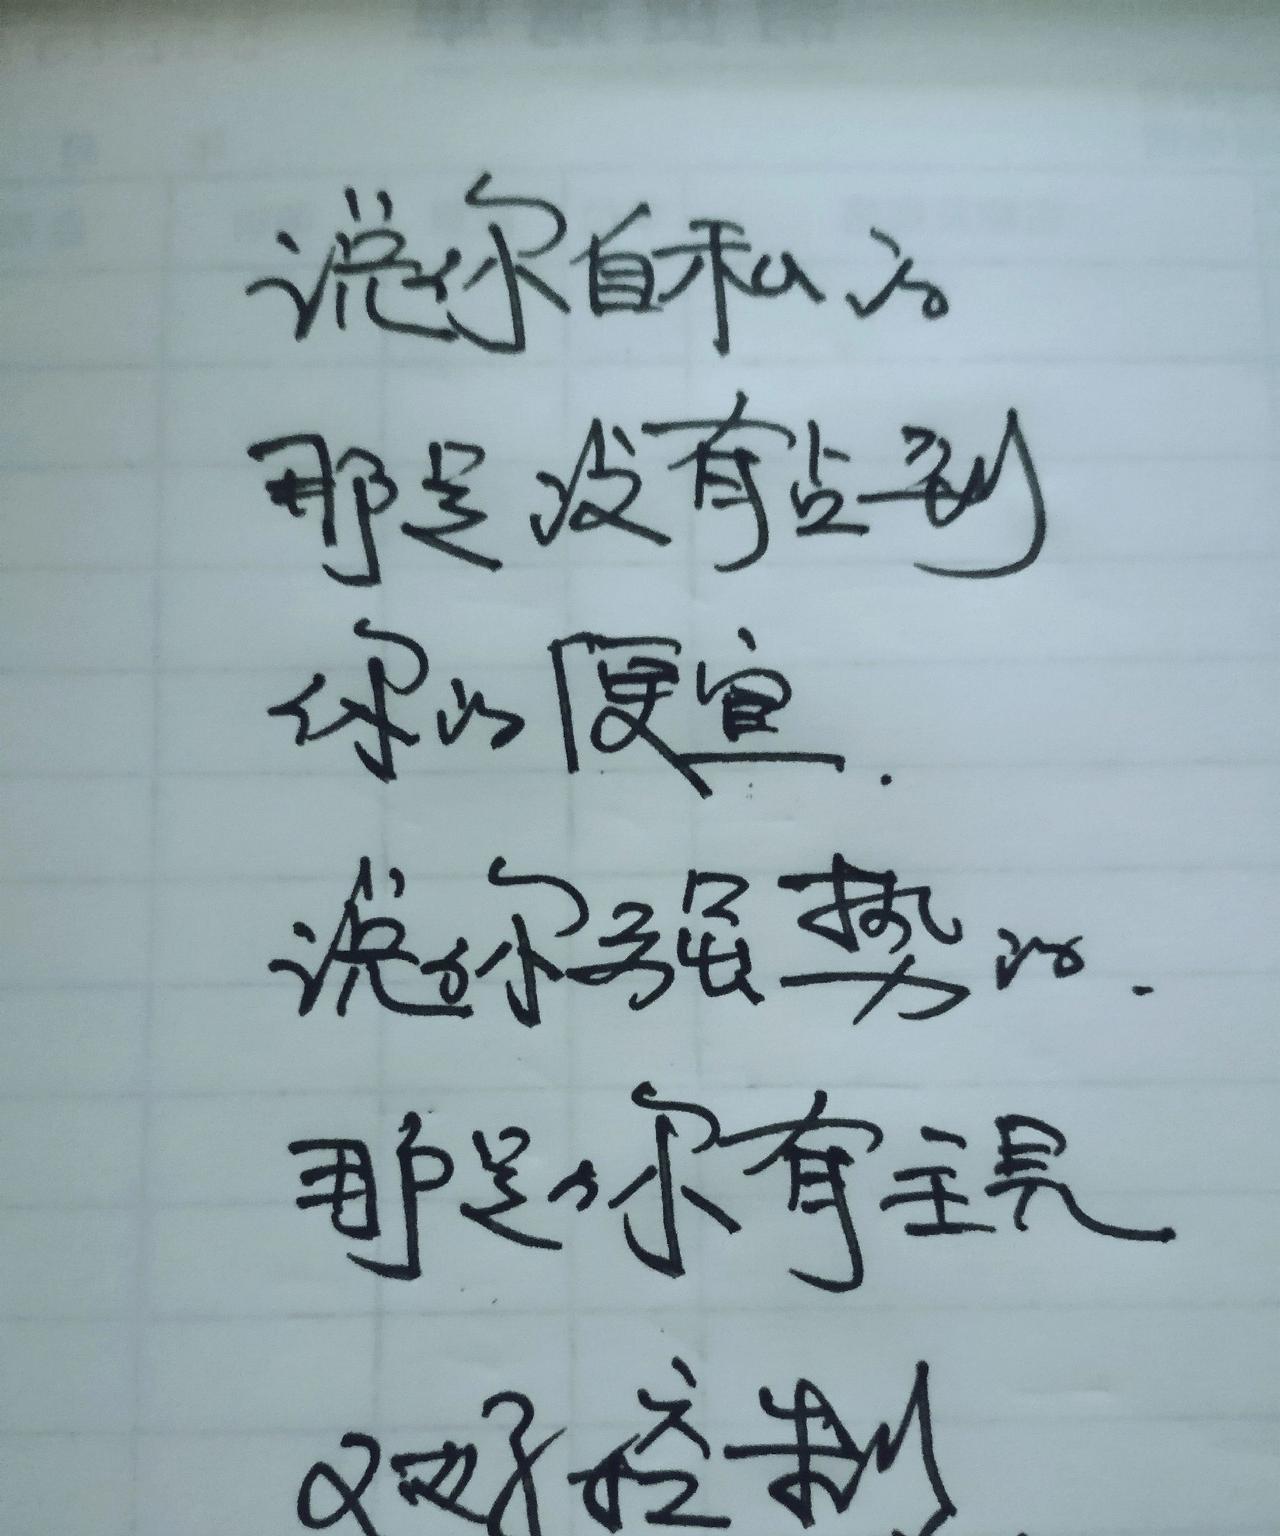 说你自私的
那是没有占到
你的便宜.
说你强势的.
那是你有主见
又好控制